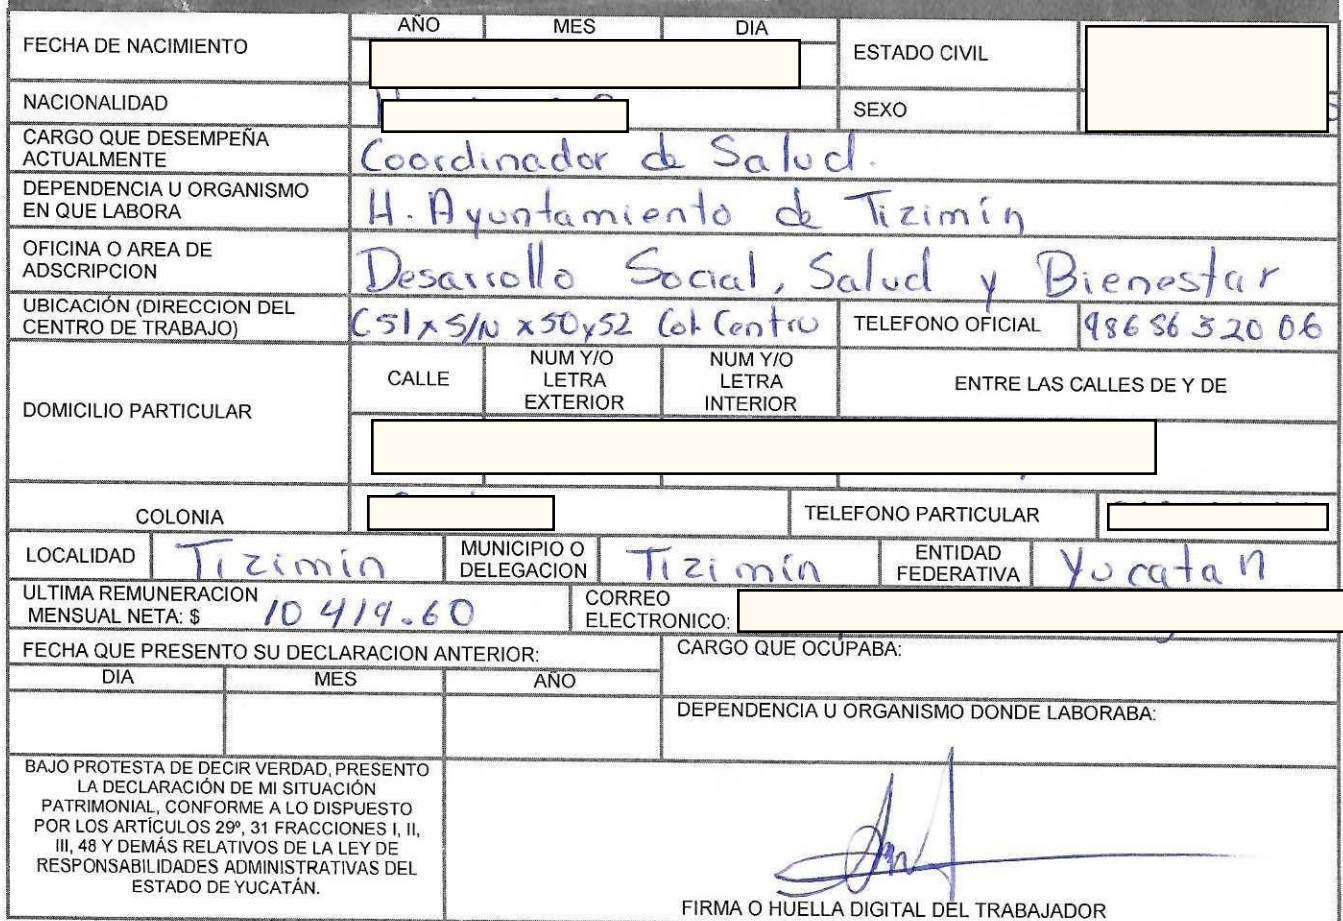 AÑO MES DIA
FECHA DE NACIMIENTO ESTADO CIVIL
NACIONALIDAD SEXO
CARGO QUE DESEMPEÑA
ACTUALMENTE Coordinador de Salud.
DEPENDENCIA U ORGANISMO
EN QUE LABORA H. Ayuntamiento de Tizimín
OFICINA O AREA DE
ADSCRIPCION Desarrollo Social, Salud y Bienestar
UBICACIÓN (DIRECCION DEL
CENTRO DE TRABAJO) C51 x S/N x 50 y 52 Col. Centro TELEFONO OFICIAL 986 86 3 20 06
DOMICILIO PARTICULAR
CALLE
NUM Y/O
LETRA
EXTERIOR
NUM Y/O
LETRA
INTERIOR
ENTRE LAS CALLES DE Y DE
COLONIA TELEFONO PARTICULAR
LOCALIDAD Tizimín
MUNICIPIO O
DELEGACION Tizimín
ENTIDAD
FEDERATIVA Yucatan
ULTIMA REMUNERACION
MENSUAL NETA: $ 10 419.60
CORREO
ELECTRONICO:
FECHA QUE PRESENTO SU DECLARACION ANTERIOR:
DIA MES AÑO
CARGO QUE OCUPABA:
DEPENDENCIA U ORGANISMO DONDE LABORABA:
BAJO PROTESTA DE DECIR VERDAD, PRESENTO
LA DECLARACIÓN DE MI SITUACIÓN
PATRIMONIAL, CONFORME A LO DISPUESTO
POR LOS ARTÍCULOS 29º, 31 FRACCIONES I, II,
III, 48 Y DEMÁS RELATIVOS DE LA LEY DE
RESPONSABILIDADES ADMINISTRATIVAS DEL
ESTADO DE YUCATÁN.
FIRMA O HUELLA DIGITAL DEL TRABAJADOR